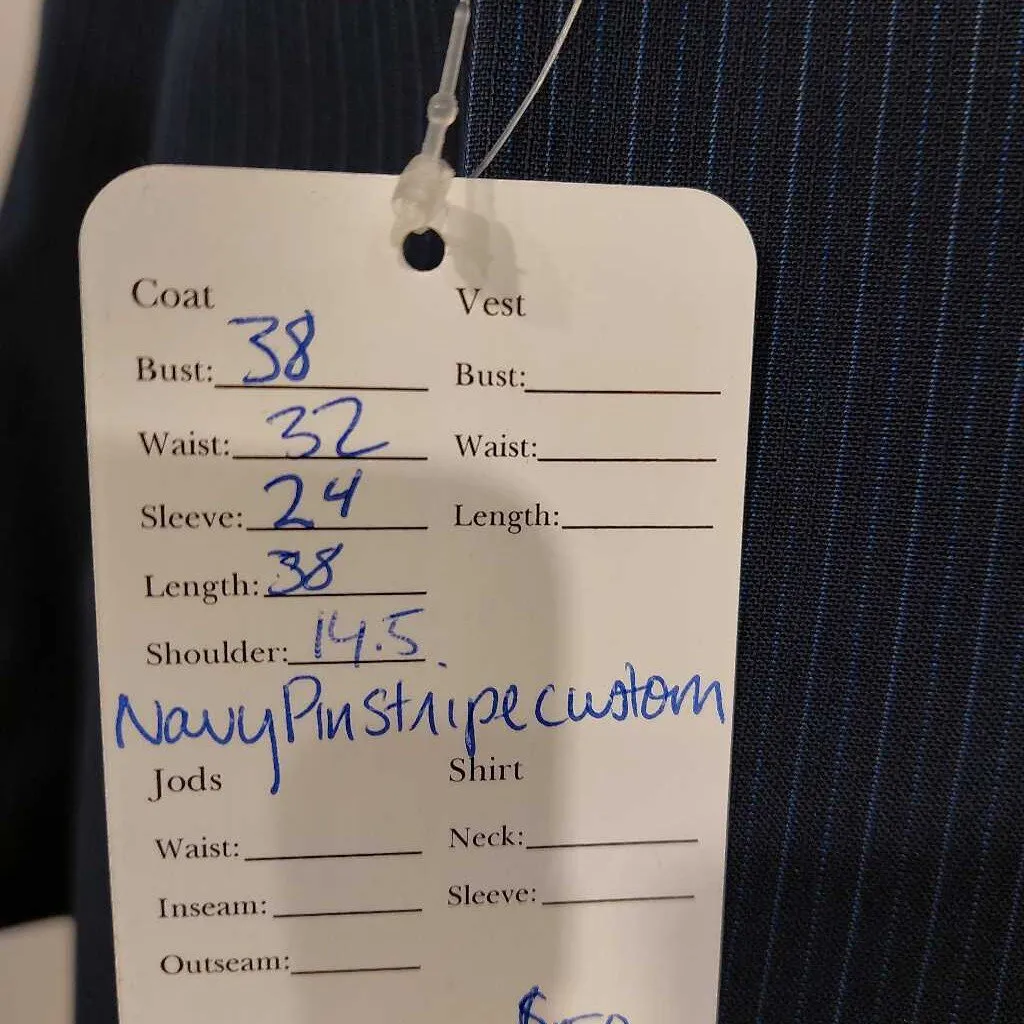 Coat
Bust: 38
Waist: 32
Sleeve: 24
Length: 38
Shoulder: 14.5
Vest
Bust:
Waist:
Length:
Navy Pinstripe custom
Jods
Waist:
Inseam:
Outseam:
Shirt
Neck:
Sleeve: